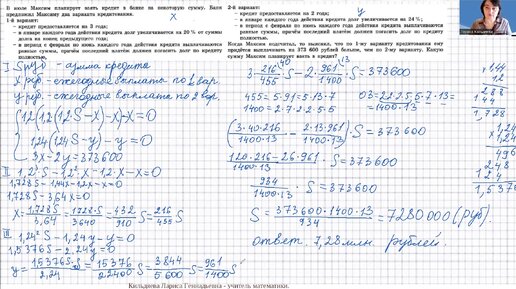 В июле Максим планирует взять кредит в банке на некоторую сумму. Банк
предложил Максиму два варианта кредитования.
1-й вариант:
- кредит предоставляется на 3 года;
- в январе каждого года действия кредита долг увеличивается на 20 % от суммы
долга на конец предыдущего года;
- в период с февраля по июнь каждого года действия кредита выплачиваются
равные суммы, причём последний платёж должен погасить долг по кредиту
полностью.
x
2-й вариант:
- кредит предоставляется на 2 года;
- в январе каждого года действия кредита долг увеличивается на 24 %;
- в период с февраля по июнь каждого года действия кредита выплачиваются
равные суммы, причём последний платёж должен погасить долг по кредиту
полностью.
y
Когда Максим подсчитал, то выяснил, что по 1-му варианту кредитования ему
придётся выплачивать на 373 600 рублей больше, чем по 2-му варианту. Какую
сумму Максим планирует взять в кредит?
I S(руб) - сумма кредита
x руб - ежегодные выплаты по 1 вар.
y руб - ежегодные выплаты по 2 вар.
1,2(1,2(1,2·S-x)-x)-x=0
1,24(1,24S-y)-y=0
3x-2y=373600
II 1,2³·S-1,2²·x-1,2·x-x=0
1,728S-1,44x-1,2x-x=0
1,728S-3,64x=0
x=1,728S/3,64=1728·S/3640=432/910 S=216/455 S
III 1,24²S-1,24y-y=0
1,5376S-2,24y=0
y=1,5376S/2,24=15376/22400 S=3844/5600 S=961/1400 S
3·216/455·S-2·961/1400·S=373600
455=5·91=5·13·7
1400=2·7·2·2·5·5
ОЗ=2·2·2·5·5·7·13=
=1400·13
(3·40·216/1400·13-2·13·961/1400·13)·S=373600
120·216-26·961/1400·13·S=373600
934/1400·13·S=373600
S=373600·1400·13/934=7280000(руб).
ответ. 7,28 млн. рублей.
144
12
288
144
1,728
1,24
1,24
496
248
124
Кильдяева Лариса Геннадьевна - учитель математики.